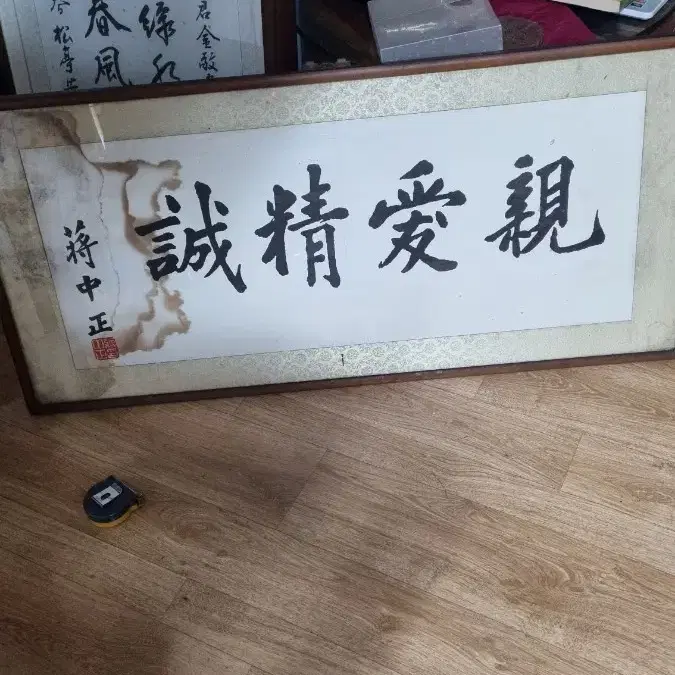 君金
綠
春風
松亭
親愛精誠
蔣中正